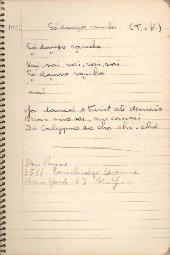 Só danço samba (T. V.)
Só danço samba
Vai, vai, vai, vai, vai
Só danço samba
vai
Já dancei o twist até demais
Mas não sei, me cansei
Do calypso ao cha-cha-chá
Don Payne